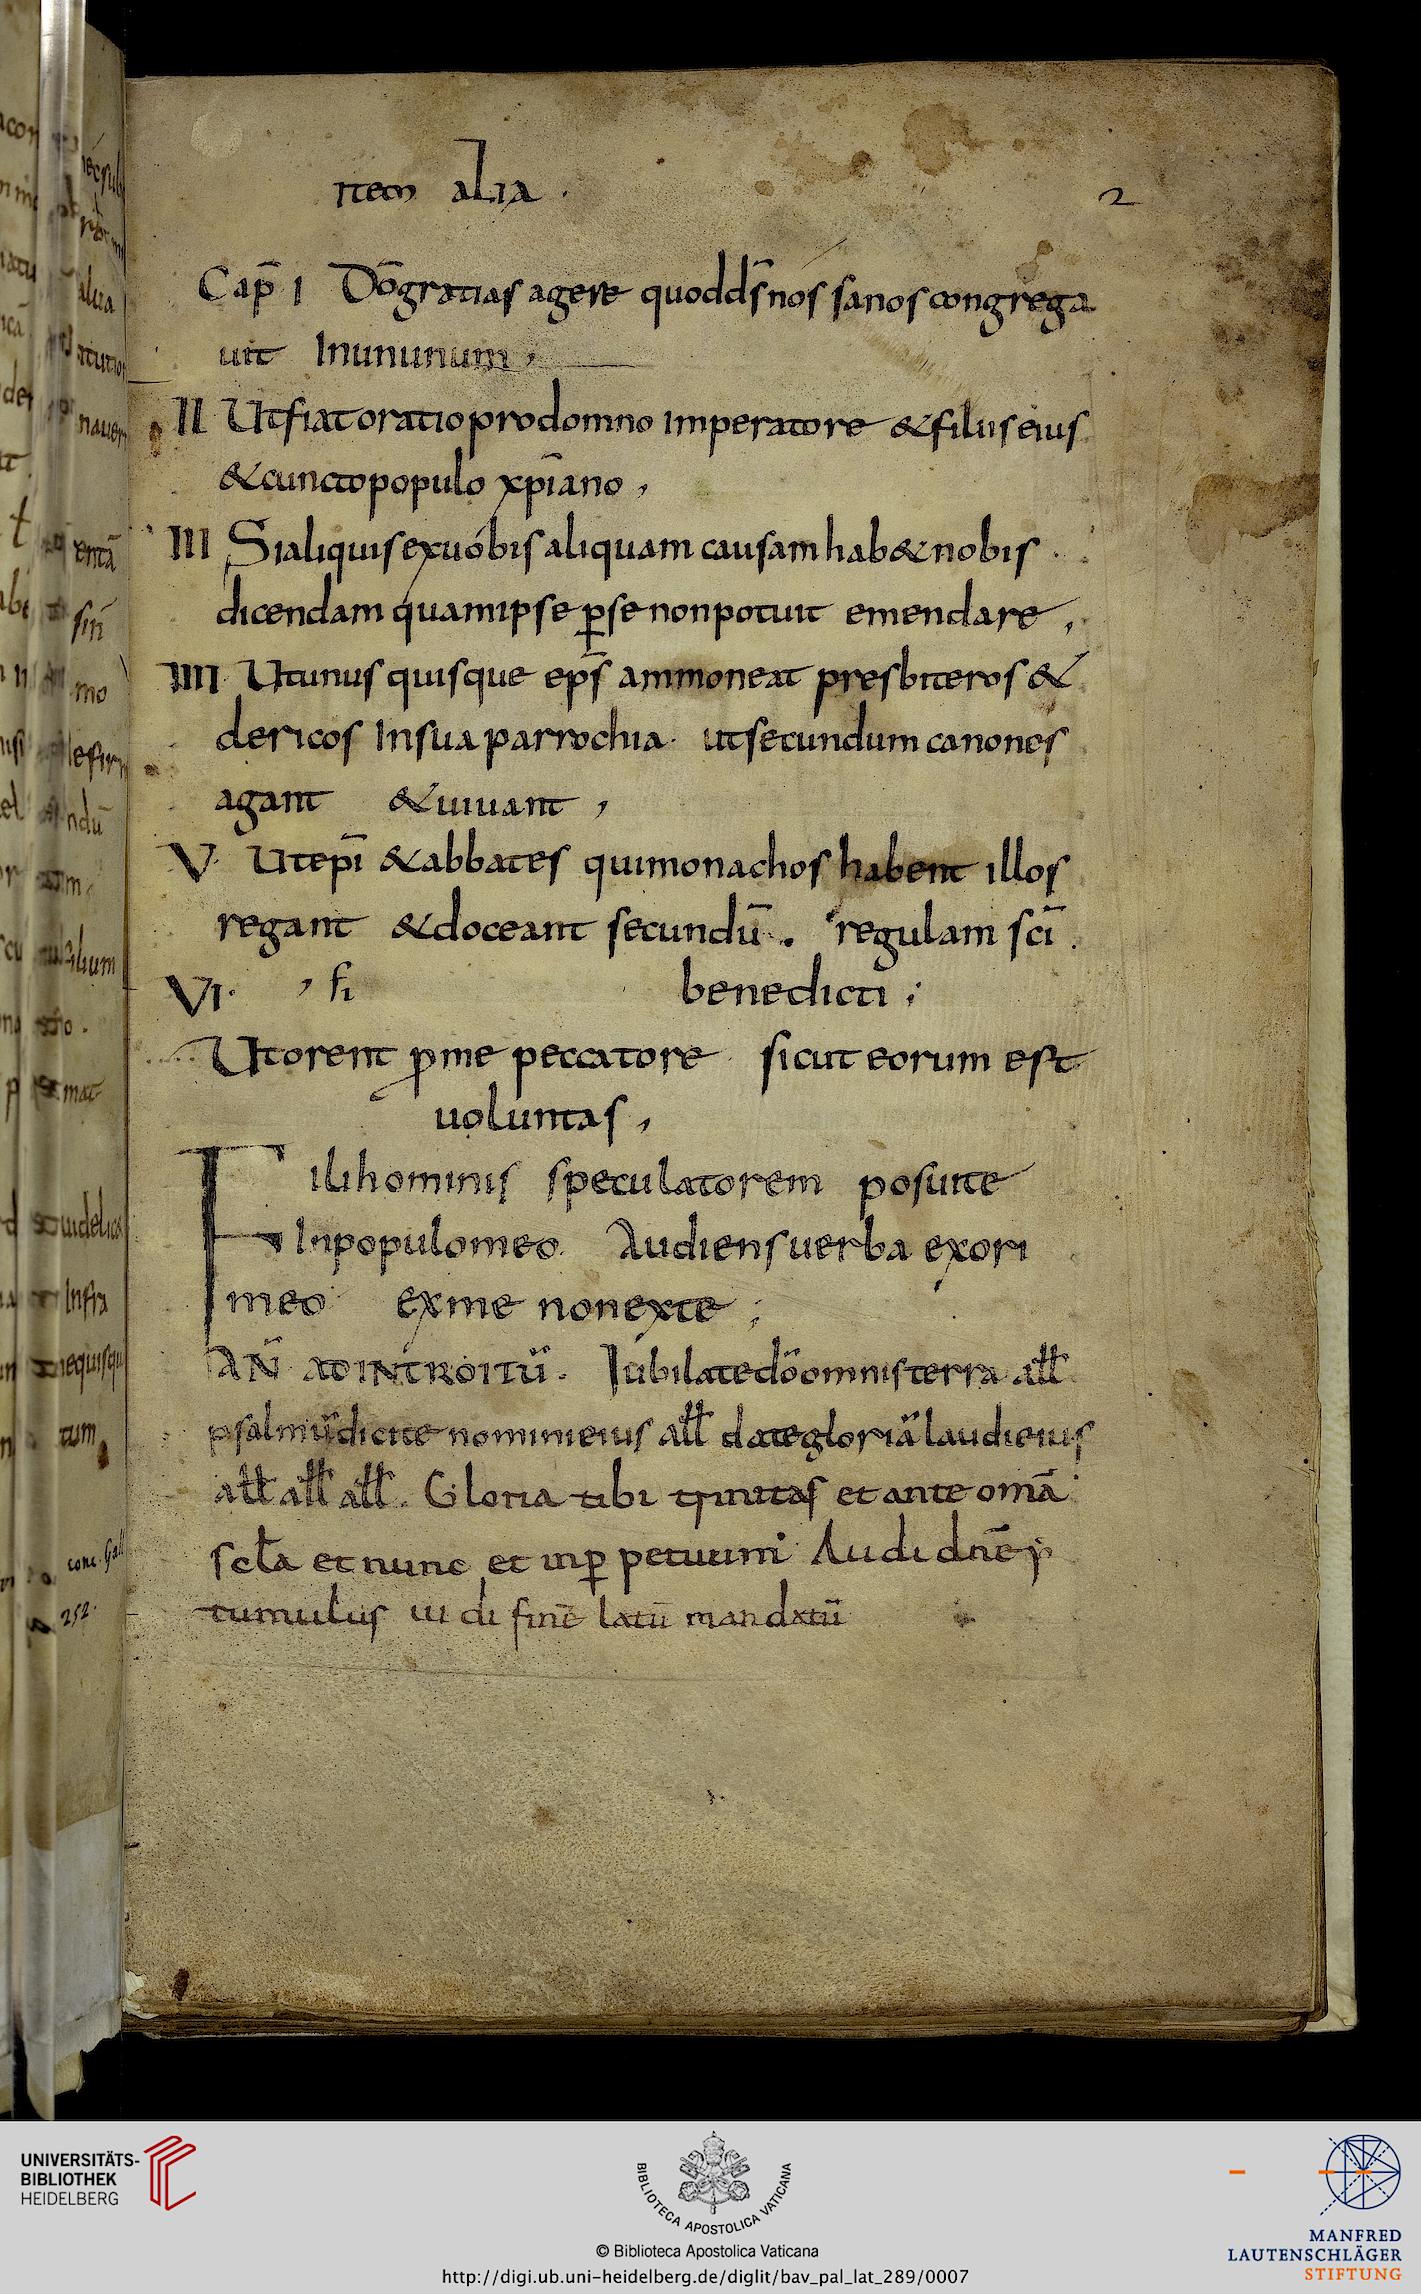 Item alia ·
2
Cap̄ I Dō gratias agere quod d̄s nós sanos congrega
uit In unum,
II Ut fiat oratio pro domno imperatore & filiis eius
& cuncto populo xp̄iano,
III Si aliquis ex uobis aliquam causam hab& nobis ·
dicendam quam ipse ꝑ se non potuit emendare,
IIII Ut unus quisque ep̄s ammoneat presbiteros &
clericos In sua parrochia · ut secundum canones
agant & uiuant,
V· Ut ep̄i & abbates qui monachos habent illos
regant & doceant secundū . regulam sc̄i .
VI· benedicti ;
Ut orent ꝓ me peccatore · sicut eorum est
uoluntas,
Fili hominis speculatorem posui te
In populo meo · Audiens uerba ex ori
meo · ex me non ex te ;
AN̄ AD INTROITŪ . Iubilate dō omnis terra all
psalmū dicite nomini eius all date gloriā laudi eius
all all all . Gloria tibi trinitas et ante om̄a
scl̄a et nunc et in ꝑpetuum Audi dn̄e
tumulus
mandatū
UNIVERSITÄTS-
BIBLIOTHEK
HEIDELBERG
BIBLIOTECA APOSTOLICA VATICANA
© Biblioteca Apostolica Vaticana
http://digi.ub.uni-heidelberg.de/diglit/bav_pal_lat_289/0007
MANFRED
LAUTENSCHLÄGER
STIFTUNG